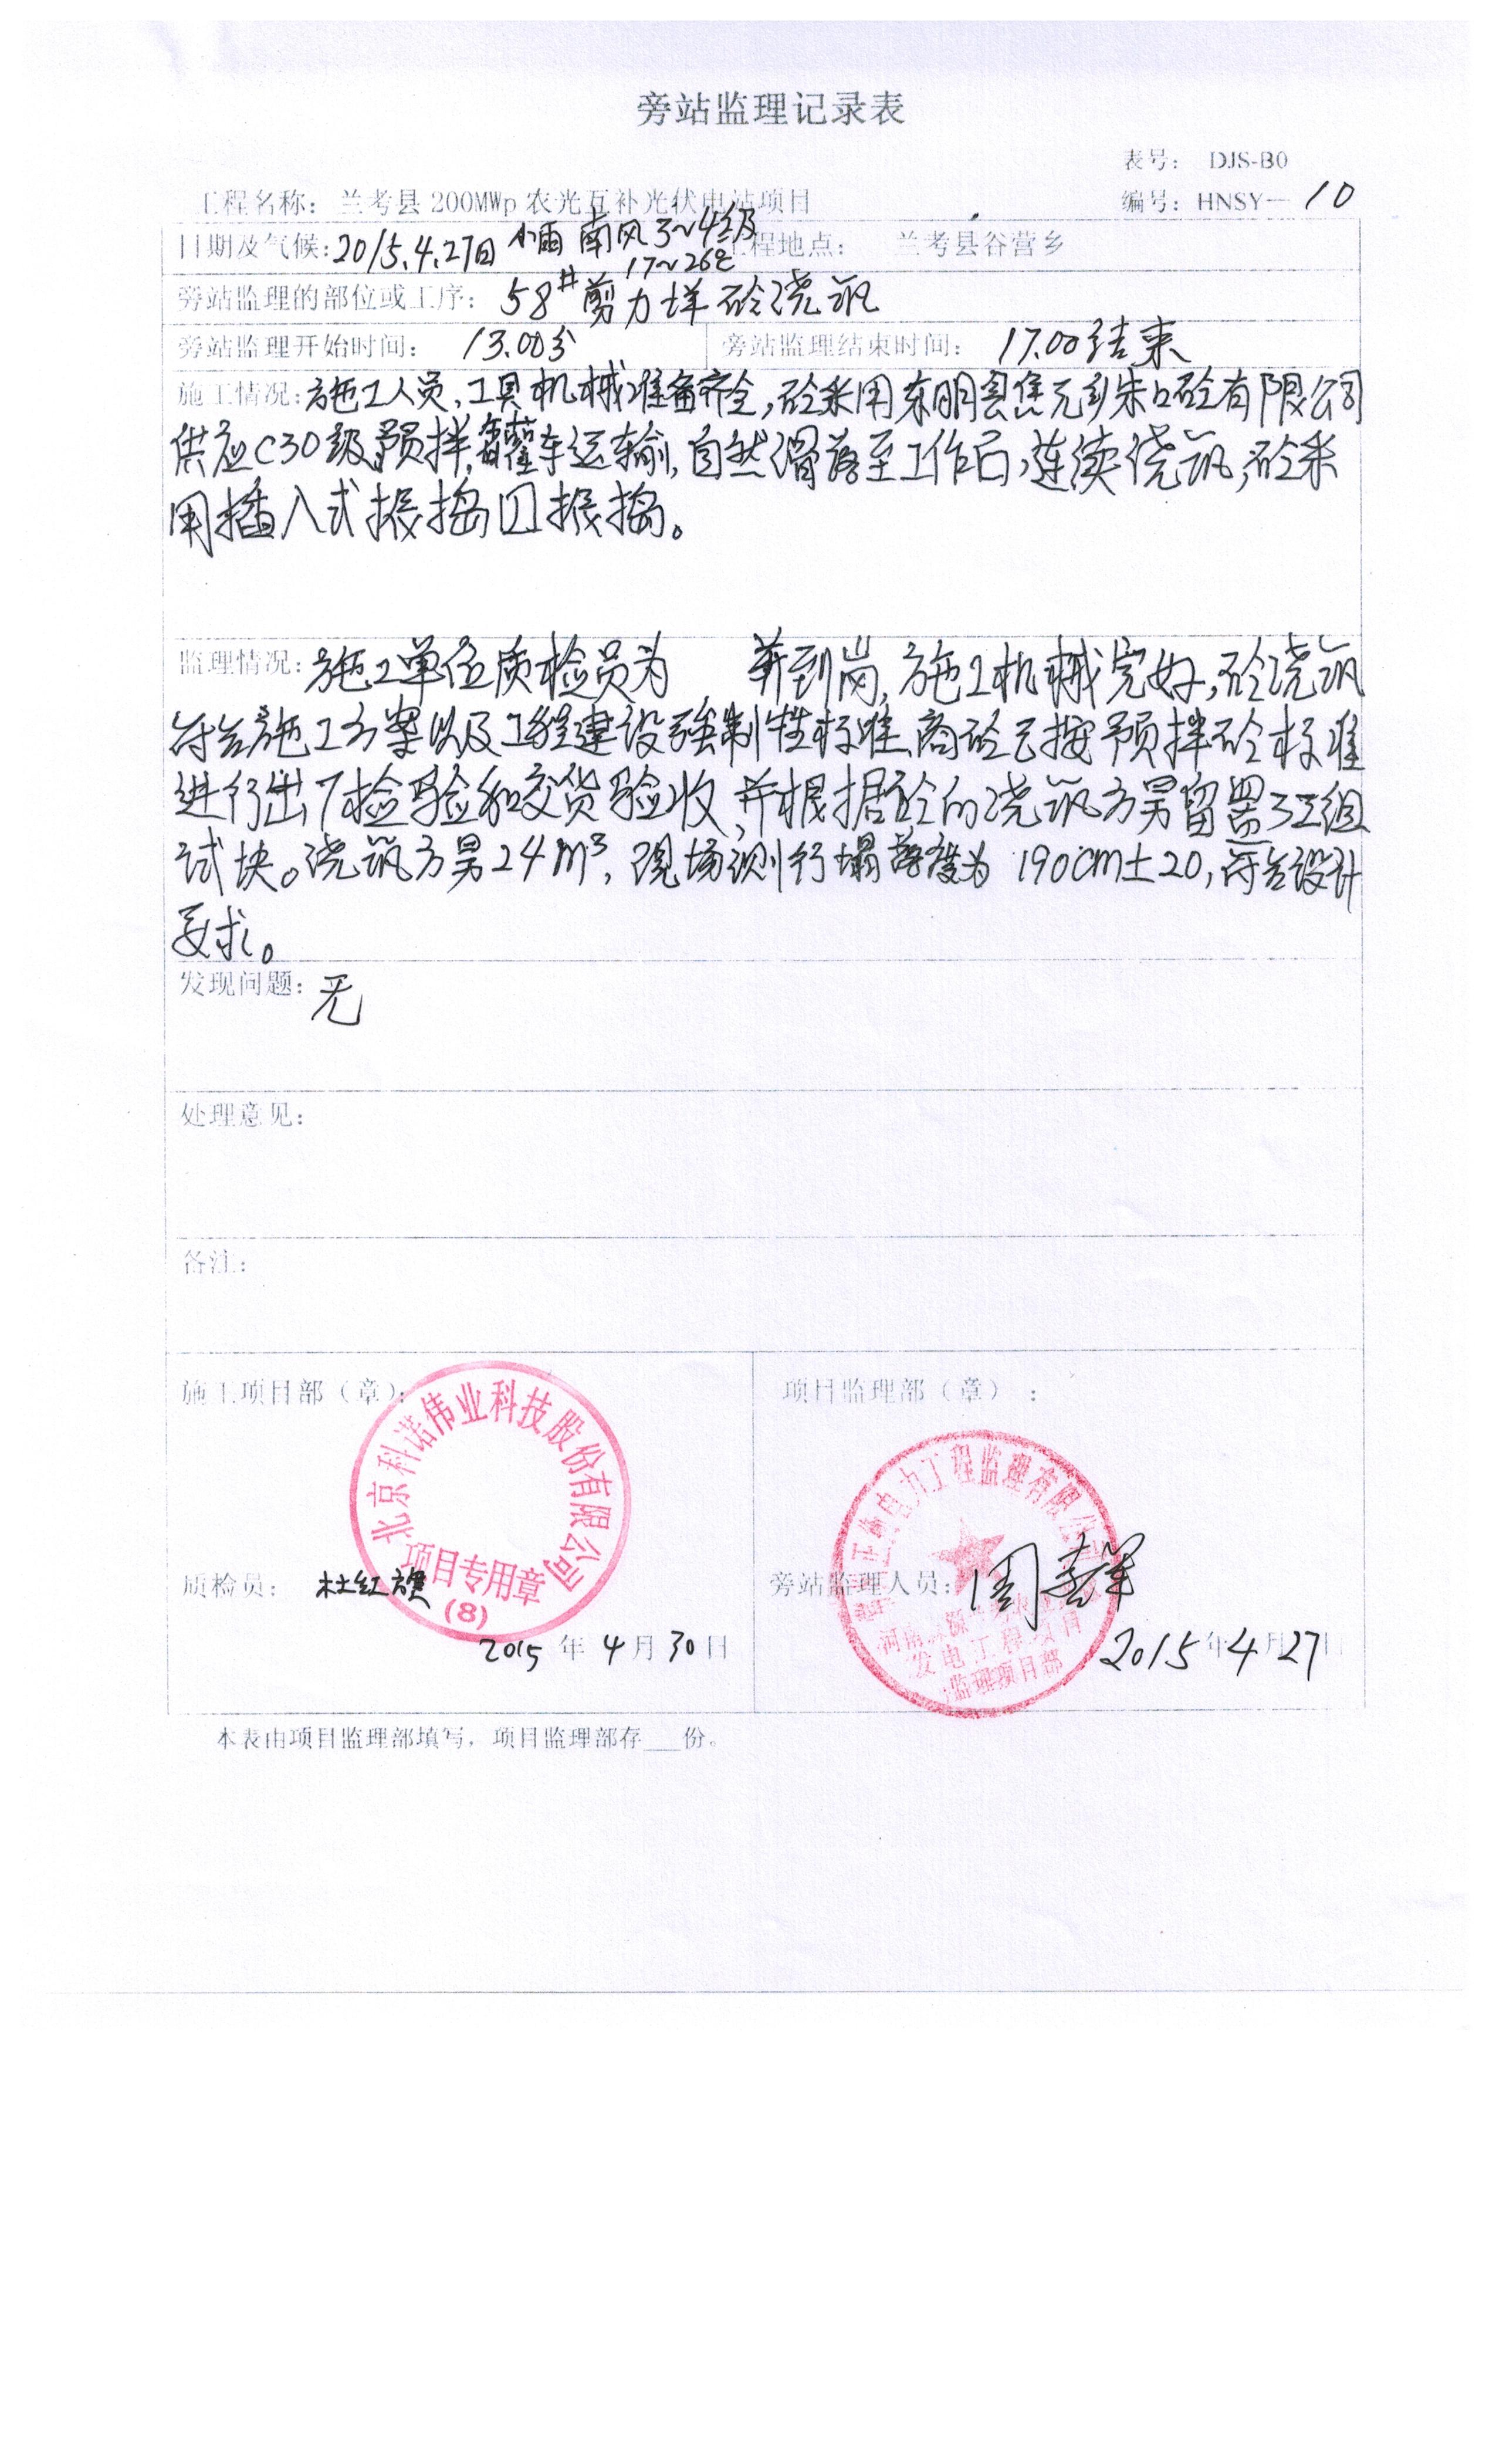 旁站监理记录表
表号： DJS-B0
工程名称： 兰考县 200MWp 农光互补光伏电站项目 编号：HNSY— 10
日期及气候：2015.4.27日 小雨 南风 3~4级 17~26℃ 程地点： 兰考县谷营乡
旁站监理的部位或工序： 58# 剪力垟砼浇筑
旁站监理开始时间： 13.00分 旁站监理结束时间： 17.00结束
施工情况：施工人员、工具机械准备齐全，砼采用东明县焦元乡朱口砼有限公司
供应C30级预拌，罐车运输，自然滑落至工作面，连续浇筑，砼采
用插入式振捣 振捣。
监理情况：施工单位质检员为 并到岗，施工机械完好，砼浇筑
符合施工方案以及工程建设强制性标准，商砼已按预拌砼标准
进行出厂检验和交货验收，并根据砼的浇筑方另留置了 组
试块。浇筑方另24m³，现场测行塌落度为 190cm±20，符合设计
要求。
发现问题：无
处理意见：
备注：
施工项目部（章）： 项目监理部（章）：
北京科诺伟业科技股份有限公司
项目专用章
(8)
电力工程监理有限公司
发电工程项目
监理项目部
质检员： 杜红旗 旁站监理人员：周喜军
2015 年 4 月 30 日 2015 年 4 月 27 日
本表由项目监理部填写，项目监理部存___份。